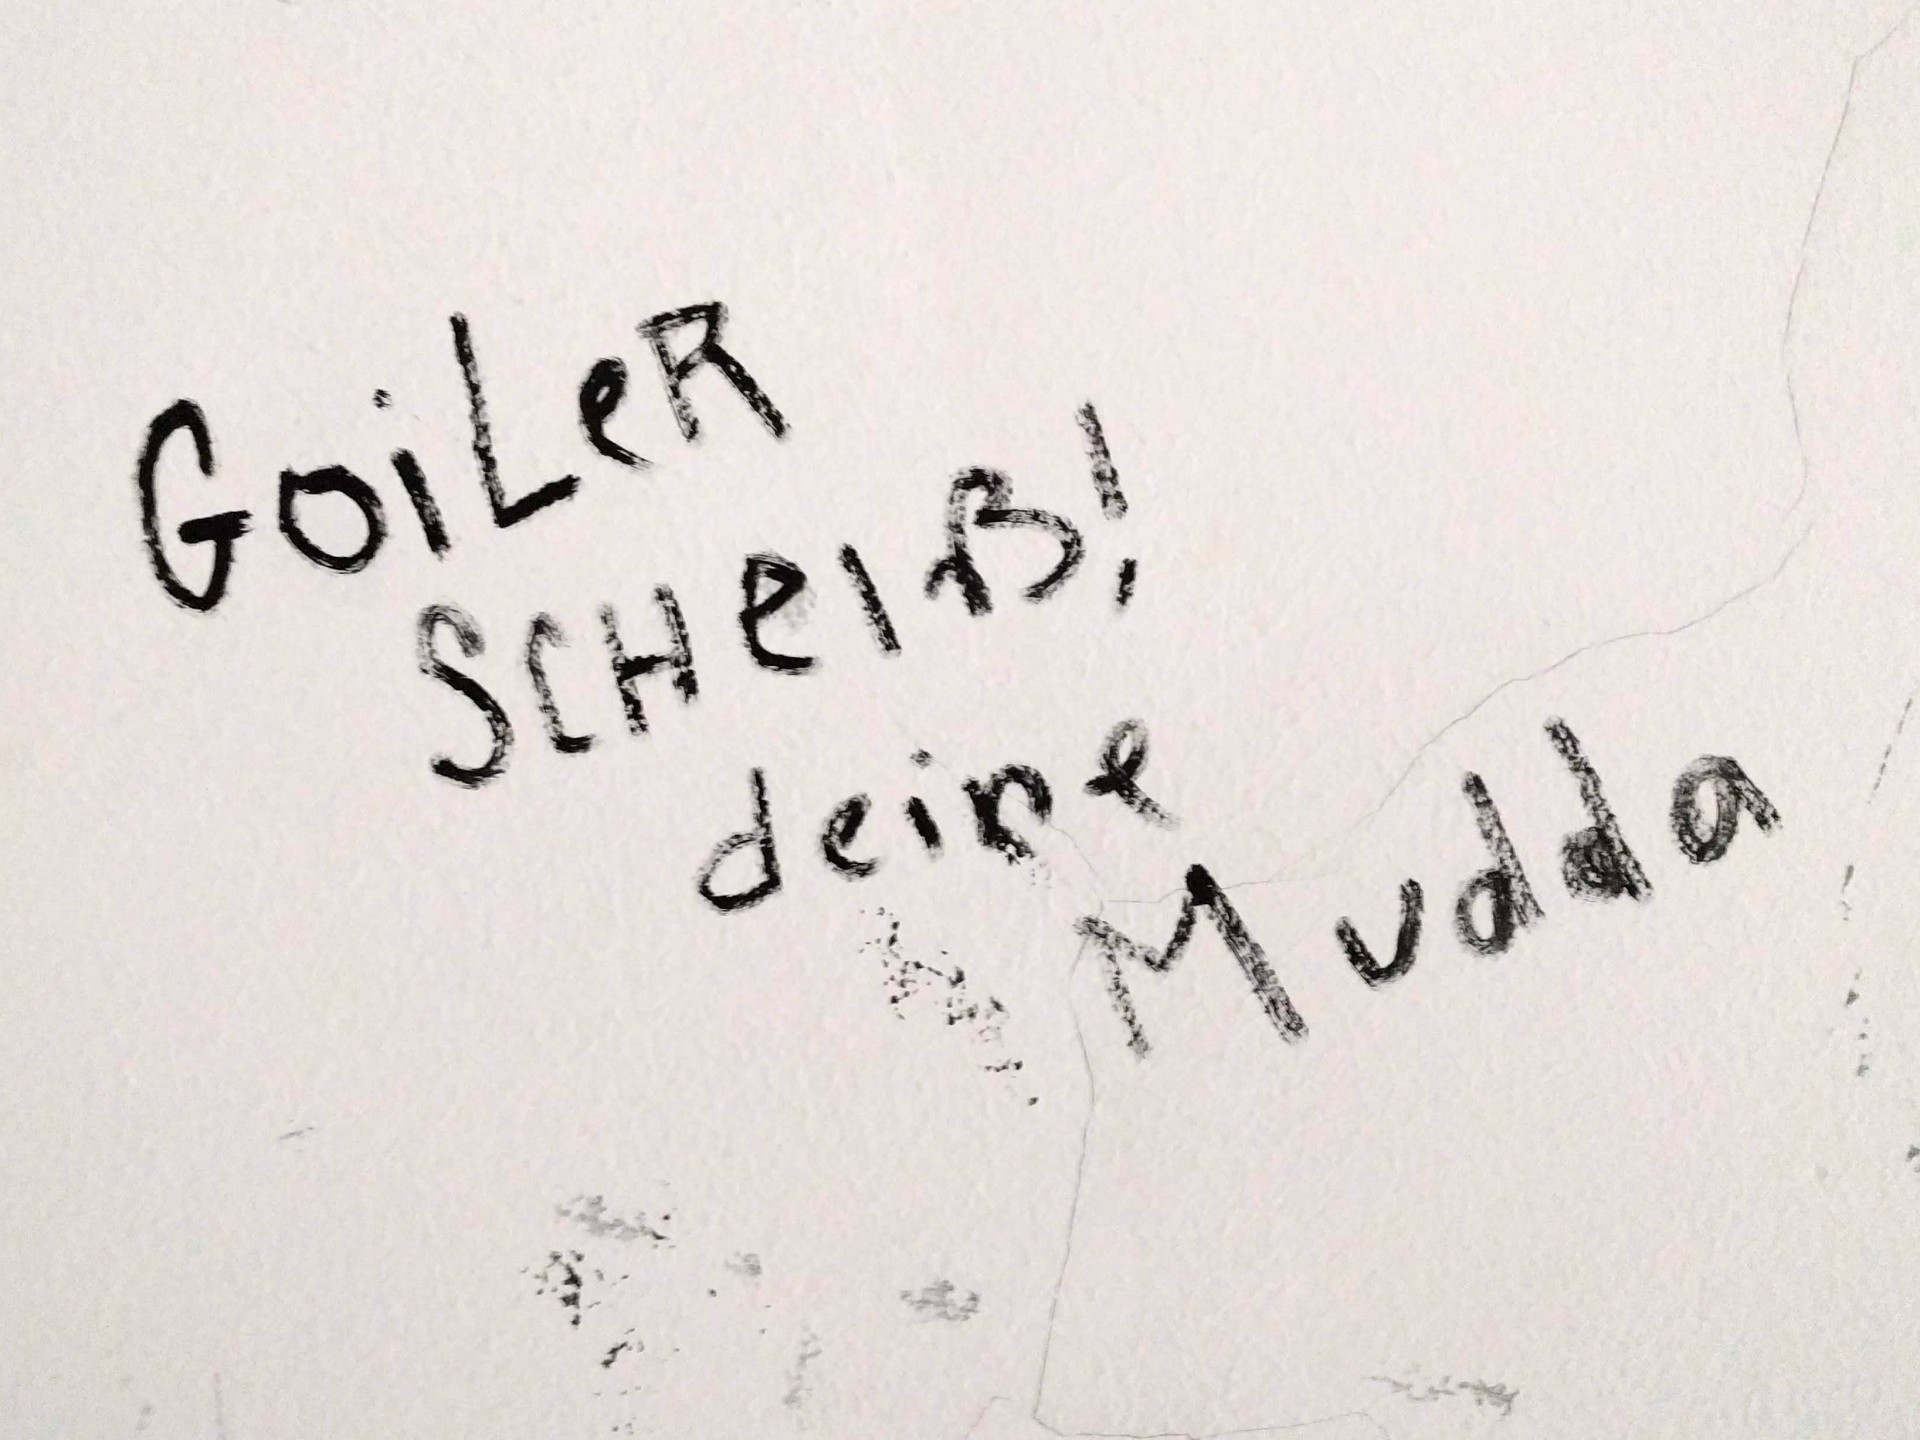 GoiLeR
SCHeIß!
deine
Mudda